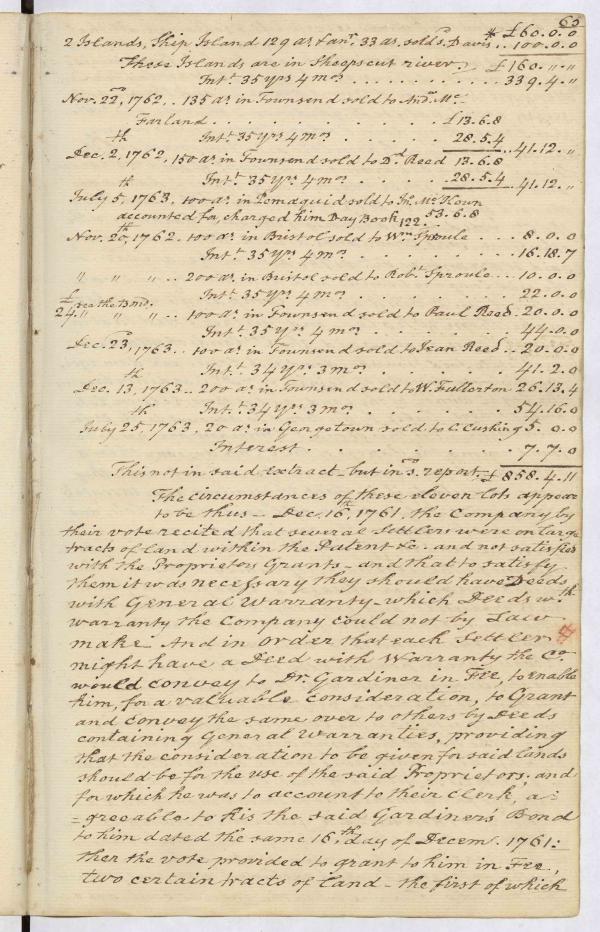 63
2 Islands, Ship Island 129 as. & anr. 33 as. sold s. Davis .. £60.0.0
100.0.0
These Islands are in Sheepscut river. £160.〃.〃
Int.t 35 yrs 4 mos . . . . . . . . . . 339.4.〃
Nov. 22, 1762 .. 135 as. in Townsend sold to And.w Mc-
Farland . . . . . . . . . £13.6.8
Int.t 35 yrs 4 mos . . . . . . 28.5.4 .. 41.12.〃
Dec. 2, 1762, 150 as. in Townsend sold to Dd. Reed 13.6.8
Int.t 35 yrs 4 mos . . . . 28.5.4 .. 41.12.〃
July 5th, 1763, 100 as. in Pemaquid sold to Jn. McKown
accounted for, charged him Day Book 122 .. 53.6.8
Nov. 20th, 1762. 100 as. in Bristol sold to Wm Sproule . . . 8.0.0
Int.t 35 yrs 4 mos . . . . . . . 16.18.7
〃 〃 〃 .. 200 as. in Bristol sold to Robt. Sproule . . . 10.0.0
Int.t 35 yrs 4 mos . . . . . . . 22.0.0
£24 see the Bond.
〃 〃 〃 .. 100 as. in Townsend sold to Paul Reed. 20.0.0
Int.t 35 yrs 4 mos . . . . . . . 44.0.0
Dec. 23, 1763 .. 100 as. in Townsend sold to Jean Reed .. 20.0.0
Int.t 34 yrs 3 mos . . . . . . . 41.2.0
Dec. 13th, 1763 .. 200 as. in Townsend sold to W. Fullerton 26.13.4
Int.t 34 yrs 3 mos . . . . . . . 54.16.0
July 25th, 1763, 20 as. in Georgetown sold to C. Cushing 5.0.0
Interest . . . . . . . . . 7.7.0
This not in said Extract - but in sd. report. £858.4.11
The circumstances of these eleven lots appear
to be thus - Dec. 16th, 1761, the Company by
their vote recited that several Settlers were on large
tracts of land within the Patent &c. and not satisfied
with the Proprietors Grants - and that to satisfy
them it was necessary they should have Deeds
with General Warranty - which Deeds wth.
warranty the Company could not by Law
make. And in order that each Settler
might have a Deed with Warranty the Co.
would convey to Dr. Gardiner in Fee, to enable
him, for a valuable consideration, to Grant
and convey the same over to others by Deeds
containing General Warranties, providing
that the consideration to be given for said lands
should be for the use of the said Proprietors; and
for which he was to account to their Clerk, a:
=greeable to his the said Gardiner's Bond
to him dated the same 16th. day of Decem. 1761:
then the vote provided to grant to him in Fee,
two certain tracts of land - the first of which